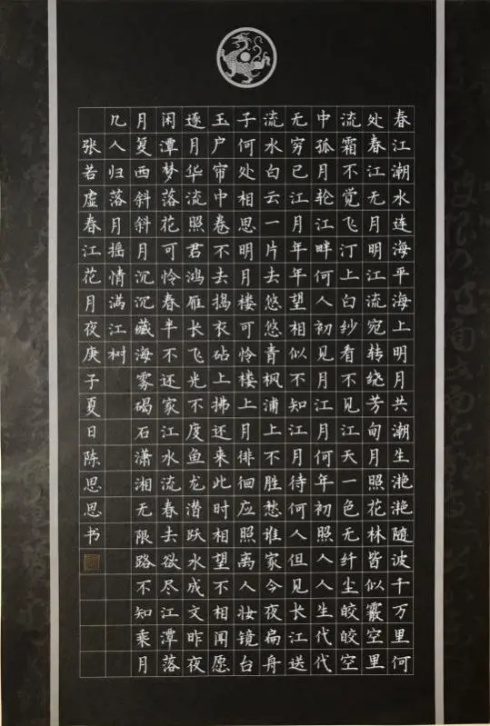 春江潮水连海平海上明月共潮生滟滟随波千万里何
处春江无月明江流宛转绕芳甸月照花林皆似霰空里
流霜不觉飞汀上白纱看不见江天一色无纤尘皎皎空
中孤月轮江畔何人初见月江月何年初照人人生代代
无穷已江月年年望相似不知江月待何人但见长江送
流水白云一片去悠悠青枫浦上不胜愁谁家今夜扁舟
子何处相思明月楼可怜楼上月徘徊应照离人妆镜台
玉户帘中卷不去捣衣砧上拂还来此时相望不相闻愿
逐月华流照君鸿雁长飞光不度鱼龙潜跃水成文昨夜
闲潭梦落花可怜春半不还家江水流春去欲尽江潭落
月复西斜斜月沉沉藏海雾碣石潇湘无限路不知乘月
几人归落月摇情满江树
张若虚春江花月夜庚子夏日陈思思书